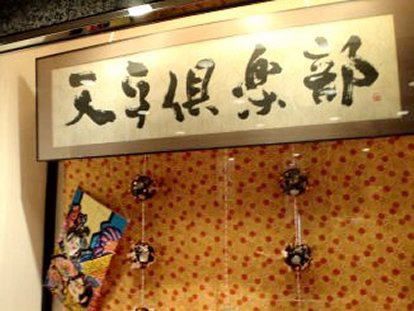 天亭倶楽部